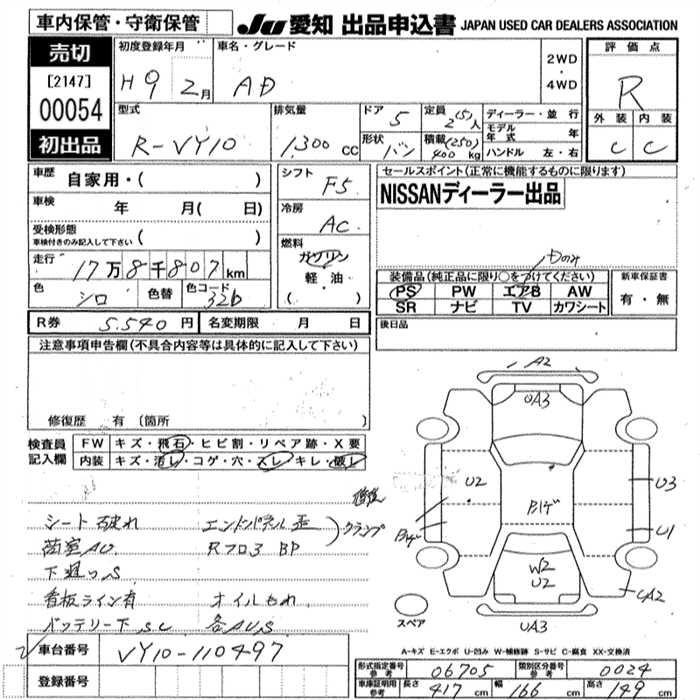 車内保管・守衛保管
JU 愛知 出品申込書 JAPAN USED CAR DEALERS ASSOCIATION
売切
[2147]
00054
初出品
初度登録年月 H 9 2月
車名・グレード AD
2WD
・
4WD
評価点
R
外装 内装
C C
型式 R-VY10
排気量 1,300 cc
ドア 5
形状 バン
定員 2(5)人
積載 (250) 400 kg
ディーラー・並行
モデル年式 年
ハンドル 左・右
車歴 自家用・( )
車検 年 月( 日)
受検形態
車検付きのみ記入して下さい ( )
走行 17万8千807km
色 シロ 色替 色コード 326
シフト F5
冷房 AC
燃料
ガソリン
軽・油
( )
セールスポイント(正常に機能するものに限ります)
NISSANディーラー出品
装備品(純正品に限り○をつけてください)
PS PW エアB AW
SR ナビ TV カワシート
新車保証書
有・無
後日品
R券 5,540円 名変期限 月 日
注意事項申告欄(不具合内容等は具体的に記入して下さい)
修復歴 有 (箇所
検査員記入欄
FW キズ・飛石・ヒビ割・リペア跡・X要
内装 キズ・汚レ・コゲ・穴・スレ・キレ・破レ
シート破れ エンドパネル歪
クランプ
荷室AU Rフロア BP
下廻りS
看板ライン有 オイルもれ
バッテリー下S.C 各AUS
A2
UA3
U2
U3
B1ゲ
Bゲ
U1
W2
U2
UA2
スペア
UA3
A-キズ E-エクボ U-凹み W-補修跡 S-サビ C-腐食 XX-交換済
車台番号 VY10-110497
登録番号
形式指定番号 参考 06705 類別区分番号 参考 0024
車庫証明用 参考 長さ 417cm 幅 166cm 高さ 149cm